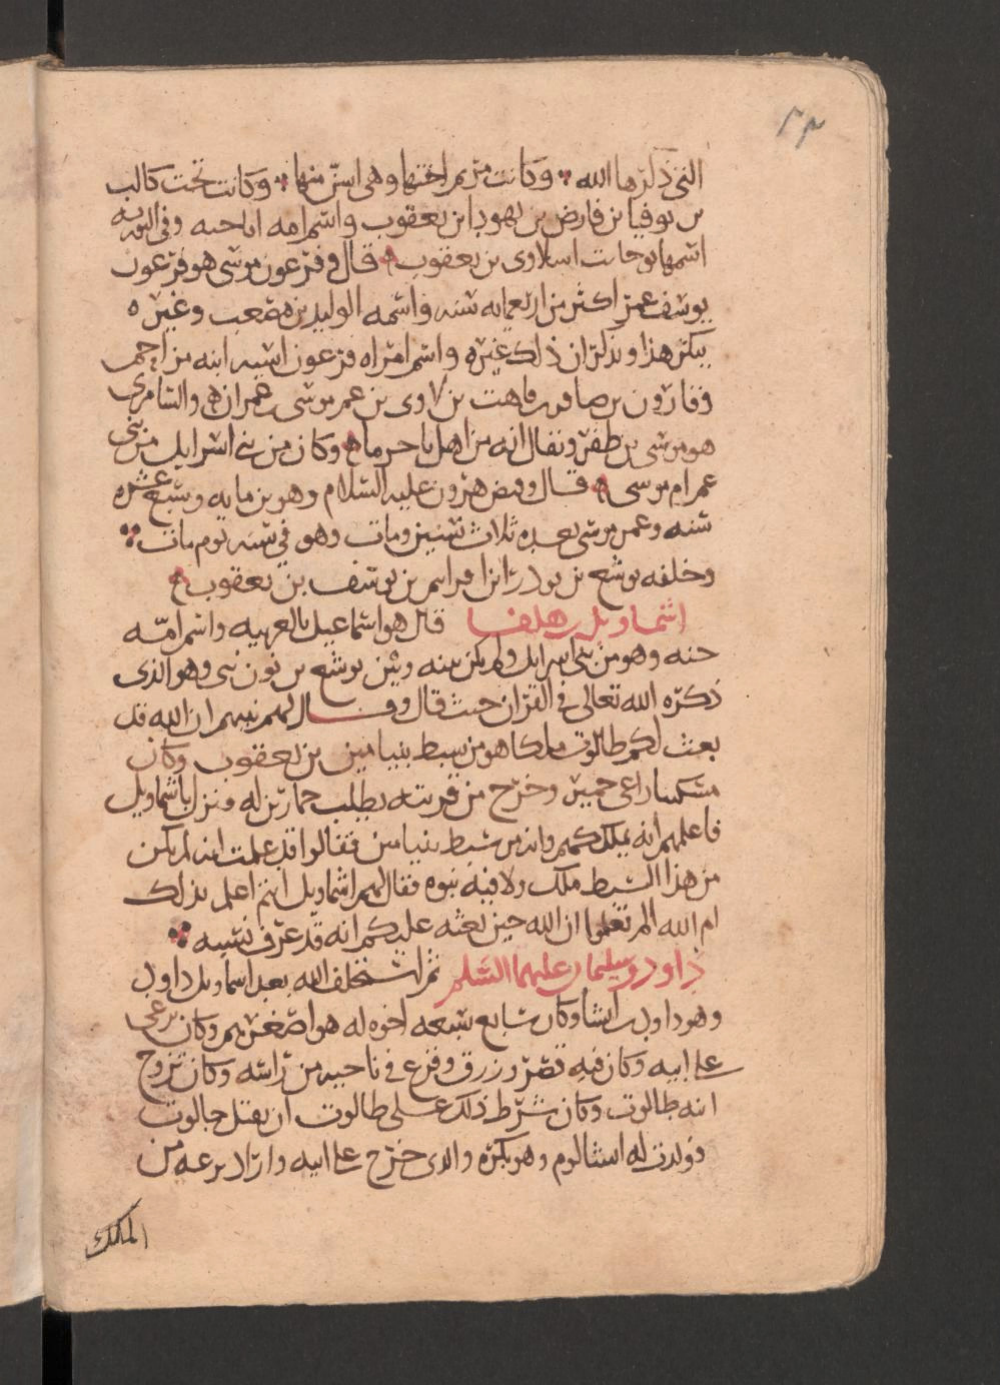 ٢٣
التى ذكرها الله وكانت مريم اختها وهى اسن منها وكانت تحت كالب
بن يوفيا بن فارض بن يهودا بن يعقوب واسم امه اناحيه وفى التوريه
اسمها يوحانت ا سلاوى بن يعقوب قال وفرعون موسى هو فرعون
يوسف عمر اكثر من اربعمايه سنه واسمه الوليد بن مصعب وغيره
ينكر هذا ويذكر ان ذلك غيره واسم امراه فرعون اسيه ابنه مزاحم
وقارون بن صافور قاهت بن لاوى بن عم موسى عمران والسامرى
هو موسى بن طفر ويقال انه من اهل باجرما وكان من بنى اسرايل من بنى
عم ام موسى قال وقبض هرون عليه السلام وهو بن مايه وسبع عشره
سنه وعمر موسى بعده ثلاث سنين ومات وهو فى سنه يوم مات
وخلفه يوشع بن نو افرايم بن يوسف بن يعقوب
اشماويل بن هلفا قال هو اسماعيل بالعربيه واسم امه
حنه وهو من بنى اسرايل ولم يكن بينه وبين يوشع بن نون نبى وهو الذى
ذكره الله تعالى فى القران حيث قال وقال لهم نبيهم ان الله قد
بعث لكم طالوت ملكا هو من سبط بنيامين بن يعقوب وكان
مسكينا راعى حمير وخرج من قريته يطلب حمارين له فنزل باشماويل
فاعلمهم انه يملككم وانه من سبط بنيامين فقالوا قد علمت انه لم يكن
من هذا السبط ملك ولا فيه نبوه فقال لهم اشماويل انتم اعلم بذلك
ام الله الم تعلموا ان الله حين بعثه عليكم انه قد عرف نسبه
داود وسليمان عليهما السلم ثم استخلف الله بعد اشماويل داود
وهو داود بن ايشا وكان سابع سبعه اخوه له هو اصغرهم وكان يرعى
على ابيه وكان فيه قصر وزرق وقرع فى ناحيه من راسه وكان تزوج
ابنه طالوت وكان شرط ذلك على طالوت ان يقتل جالوت
فولدت له ابشالوم وهو بكره والذى خرج على ابيه واراد نزعه من
الملك